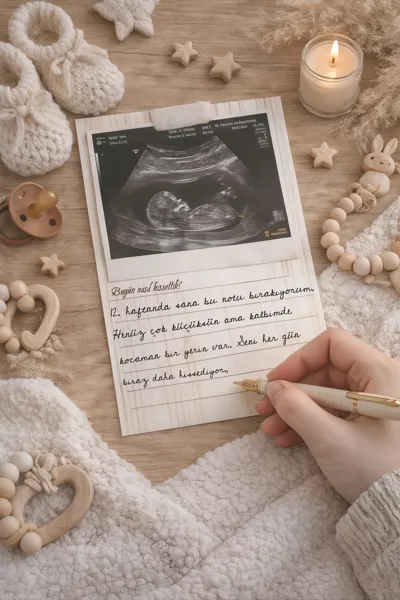 Bugün nasıl hissettik?
12. haftanda sana bu notu bırakıyorum.
Henüz çok küçüksün ama kalbimde
kocaman bir yerin var. Seni her gün
biraz daha hissediyor,